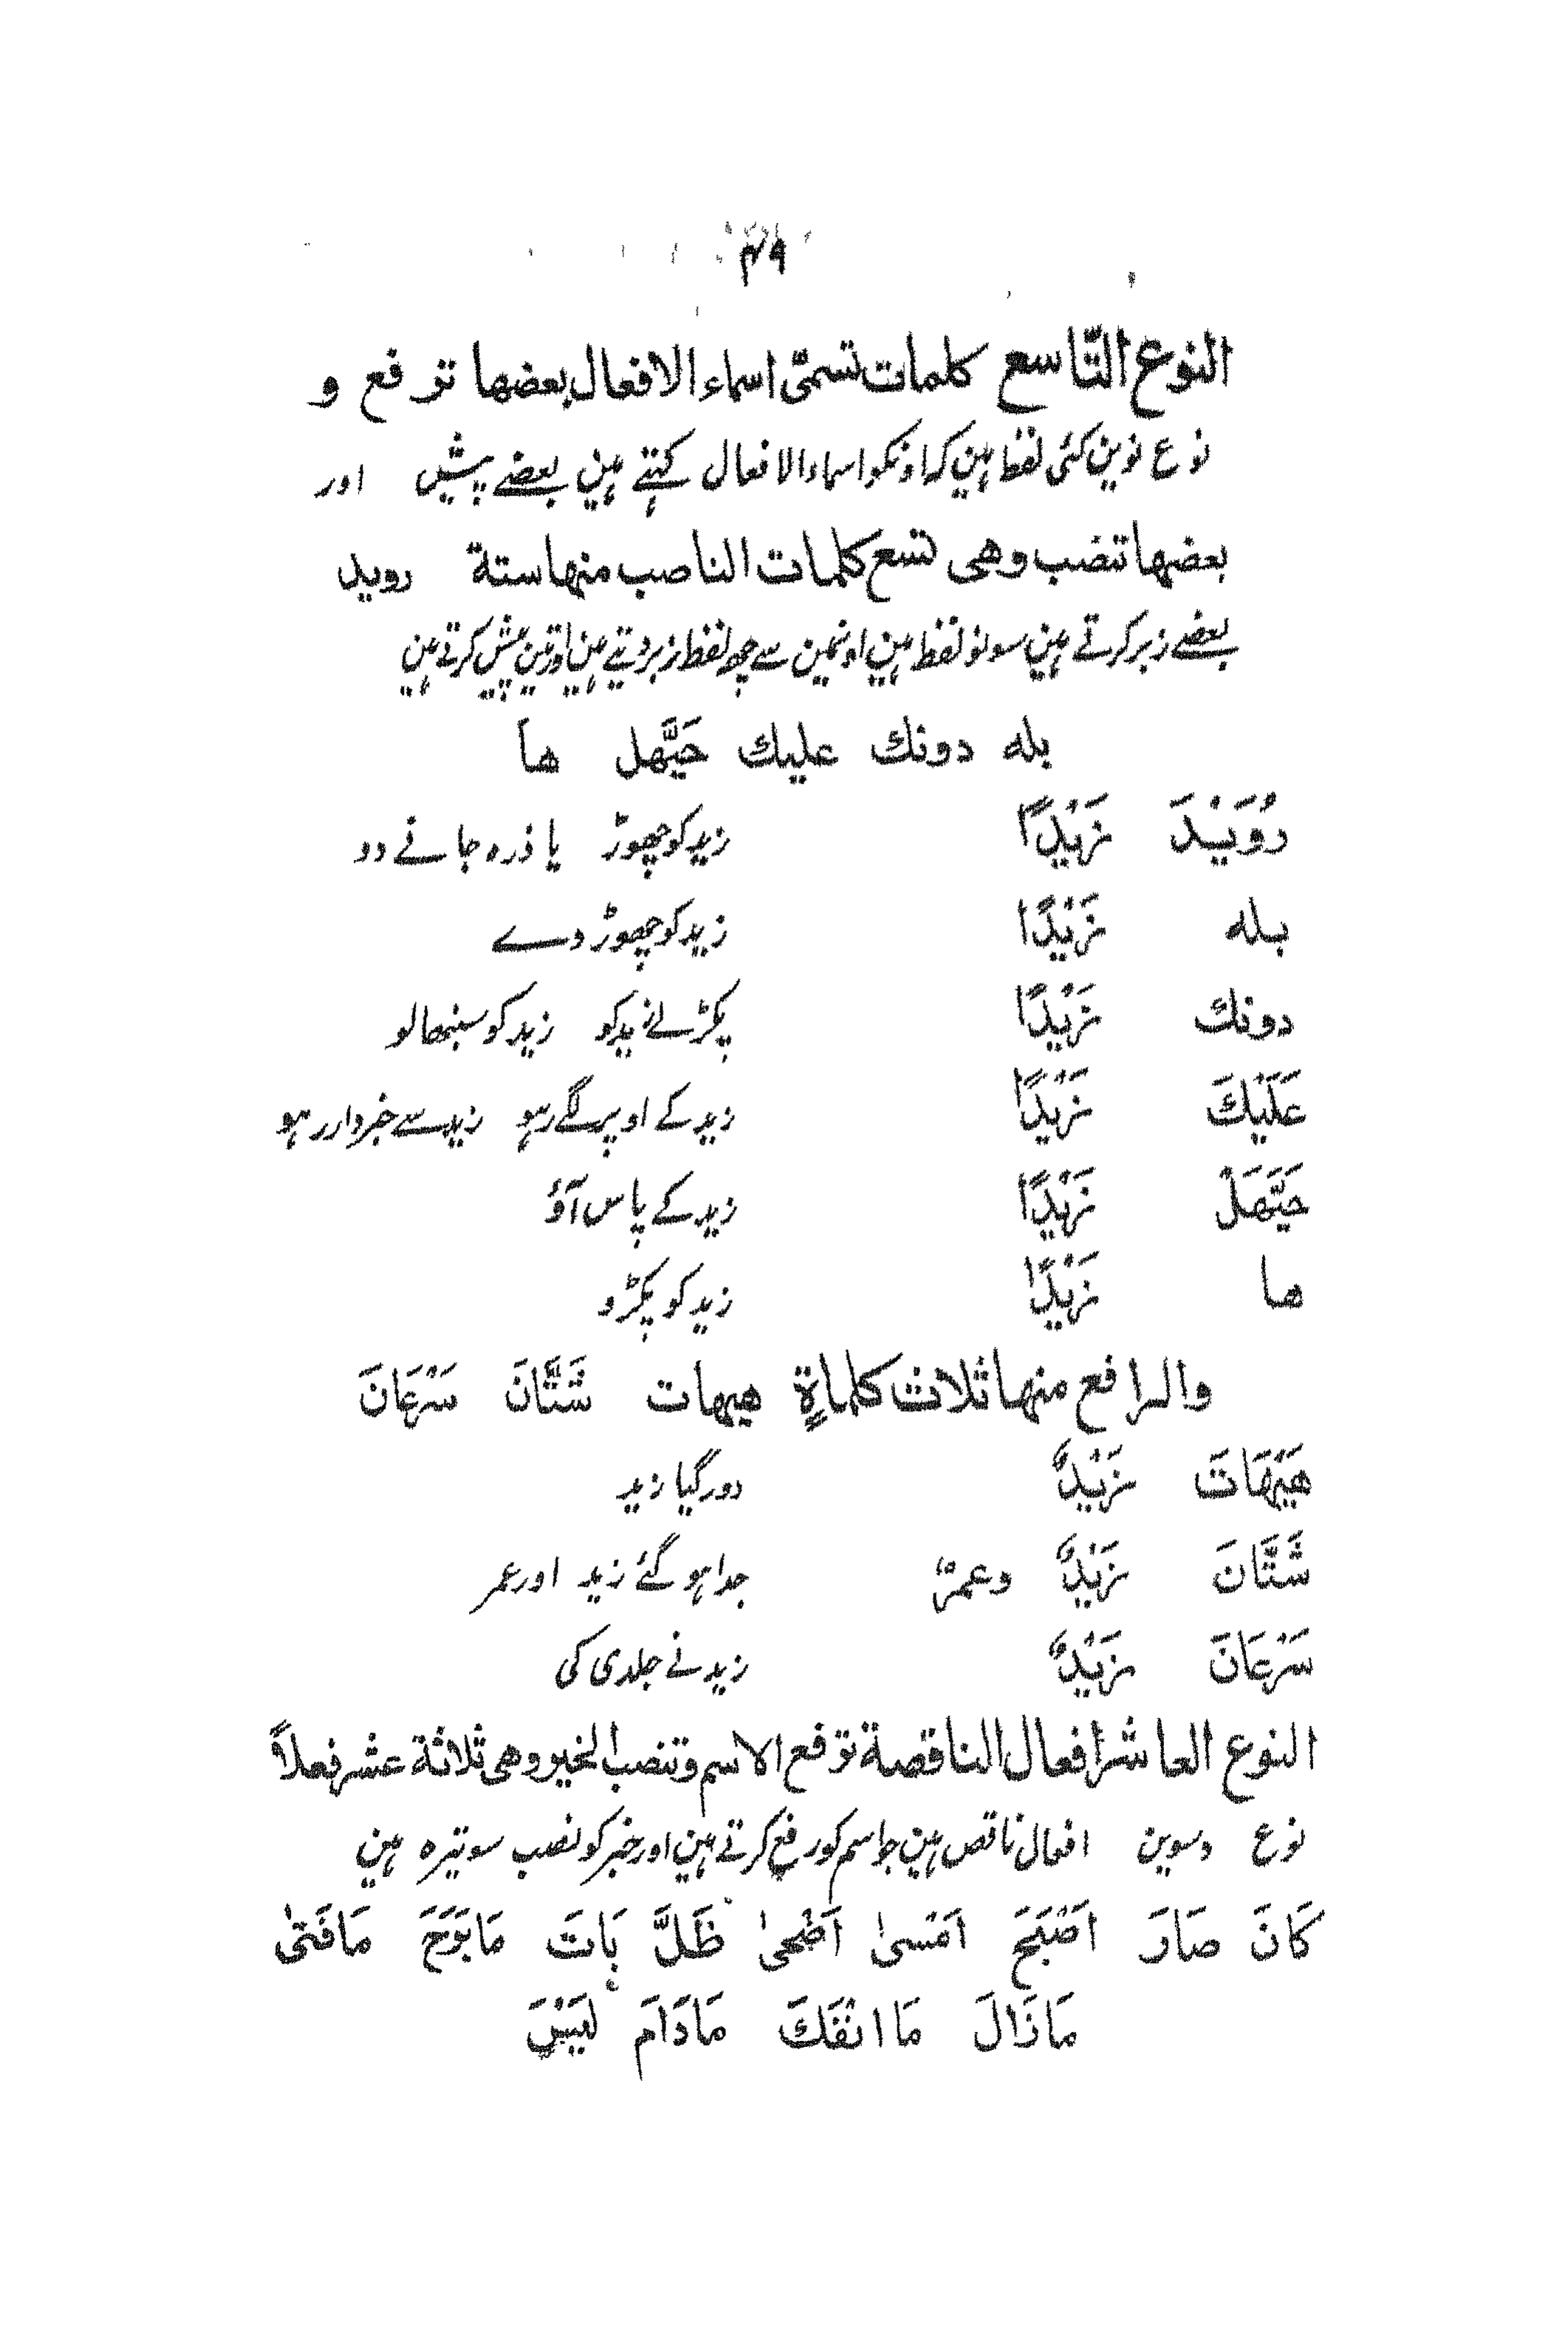 ۴۹
النوع التّاسع كلمات تسمىّ اسماء الافعال بعضها ترفع و
نوع نوین کئی لفظ ہین کہ اونکو اسماء الافعال کہتے ہین بعضے پیش اور
بعضها تنضب وهى تسع كلمات الناصب منها ستة رويد
بعضے زبر کرتے ہین سو نو لفظ ہین اونمین سے چھ لفظ زبر دیتے ہین اور تین پیش کرتے ہین
بله دونك عليك حَيَّهل ها
رُوَيْدَ زَيْدًا زید کو چھوڑ یا ذرہ جانے دو
بله زَيْدًا زید کو چھوڑ دے
دونك زَيْدًا پکڑ لے زید کو زید کو سنبھالو
عَلَيْكَ زَيْدًا زید کے اوپر لگے رہو زید سے خبردار رہو
حَيَّهَلْ زَيْدًا زید کے پاس آؤ
ها زَيْدًا زید کو پکڑو
والرافع منها ثلاث كلماةٍ هيهات شَتَّانَ سَرْعَانَ
هَيْهَاتَ زَيْدٌ دور گیا زید
شَتَّانَ زَيْدٌ وعمرٌ جدا ہو گئے زید اور عمر
سَرْعَانَ زَيْدٌ زید نے جلدی کی
النوع العاشر افعال الناقصة ترفع الاسم وتنصب الخبر وهى ثلاثة عشر فعلاً
نوع دسوین افعال ناقص ہین جو اسم کو رفع کرتے ہین اور خبر کو نصب سو تیرہ ہین
كَانَ صَارَ اَصْبَحَ اَمْسىٰ اَضْحىٰ ظَلَّ بَاتَ مَابَرَحَ مَافَتىٰ
مَازَالَ مَاانْفَكَ مَادَامَ لَيْسَ